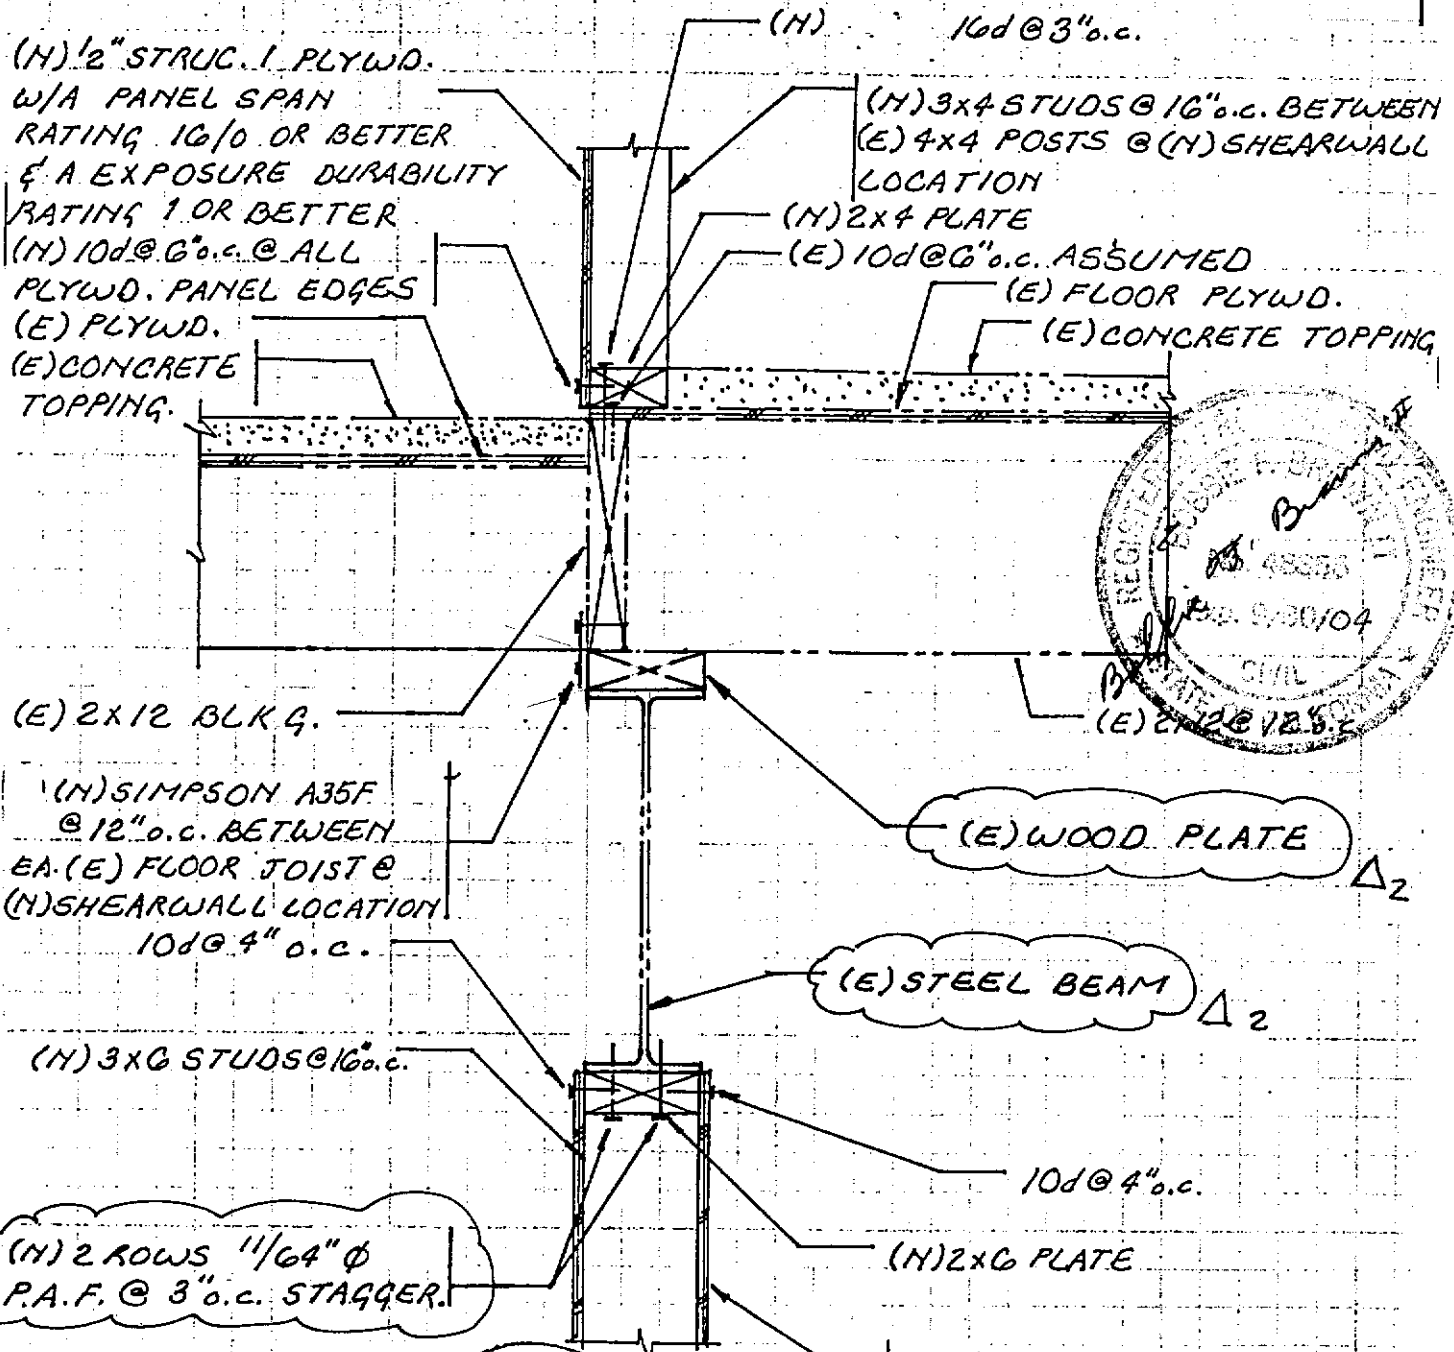 (N) 16d @ 3" o.c.
(N) 1/2" STRUC. 1 PLYWD.
W/A PANEL SPAN
RATING 16/0 OR BETTER
& A EXPOSURE DURABILITY
RATING 1 OR BETTER
(N) 10d @ 6" o.c. @ ALL
PLYWD. PANEL EDGES
(E) PLYWD.
(E) CONCRETE
TOPPING.
(N) 3x4 STUDS @ 16" o.c. BETWEEN
(E) 4x4 POSTS @ (N) SHEARWALL
LOCATION
(N) 2x4 PLATE
(E) 10d @ 6" o.c. ASSUMED
(E) FLOOR PLYWD.
(E) CONCRETE TOPPING
REGISTERED ENGINEER
Exp. 9/30/04
CIVIL
STATE OF
(E) 2x12 @ 12" o.c.
(E) 2x12 BLKG.
(N) SIMPSON A35F
@ 12" o.c. BETWEEN
EA. (E) FLOOR JOIST @
(N) SHEARWALL LOCATION
10d @ 4" o.c.
(E) WOOD PLATE
Δ2
(E) STEEL BEAM
Δ2
(N) 3x6 STUDS @ 16" o.c.
10d @ 4" o.c.
(N) 2x6 PLATE
(N) 2 ROWS 11/64" φ
P.A.F. @ 3" o.c. STAGGER.